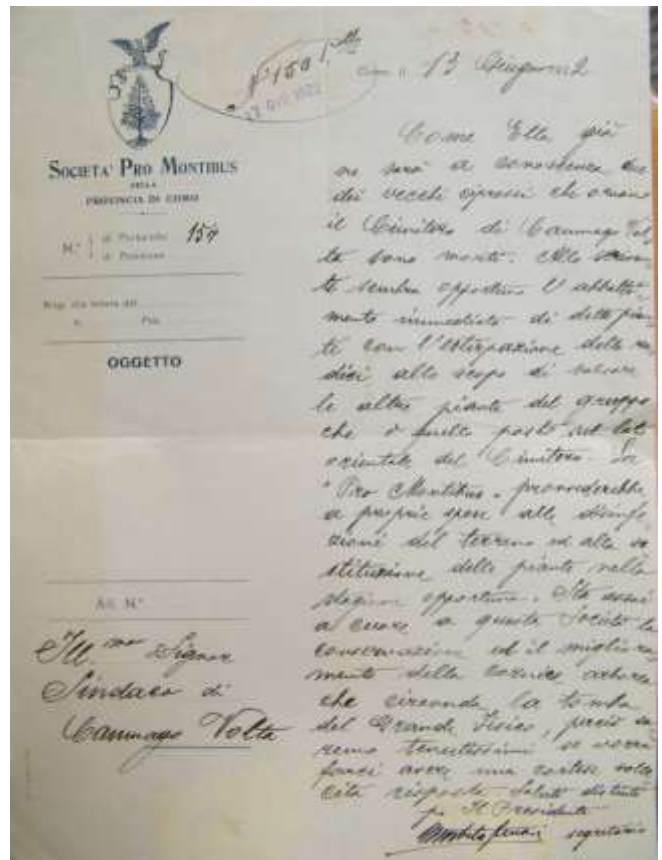 SOCIETA' PRO MONTIBUS
DELLA
PROVINCIA DI COMO
N.° di Protocollo 154
di Posizione
Risp. alla lettera del
N. Pos.
OGGETTO
All. N.°
Ill.mo Signor
Sindaco di
Camnago Volta
13 Giugno
Come Ella già
ne sarà a conoscenza due
dei vecchi cipressi che ornano
il Cimitero di Camnago Vol-
ta sono morti. Allo scriven-
te sembra opportuno l'abbatti-
mento immediato di dette pian-
te con l'estirpazione delle ra-
dici allo scopo di salvare
le altre piante del gruppo
che è quello posto nel lato
orientale del Cimitero. La
"Pro Montibus" provvederebbe
a proprie spese alla disinfe-
zione del terreno ed alla so-
stituzione delle piante nella
stagione opportuna. Sta assai
a cuore a questa Società la
conservazione ed il migliora-
mento della cornice arborea
che circonda la tomba
del Grande Fisico, perciò sa-
remo tenutissimi se vorrà
farci avere una cortese solle-
cita risposta. Saluti distinti
p. Il Presidente
segretario